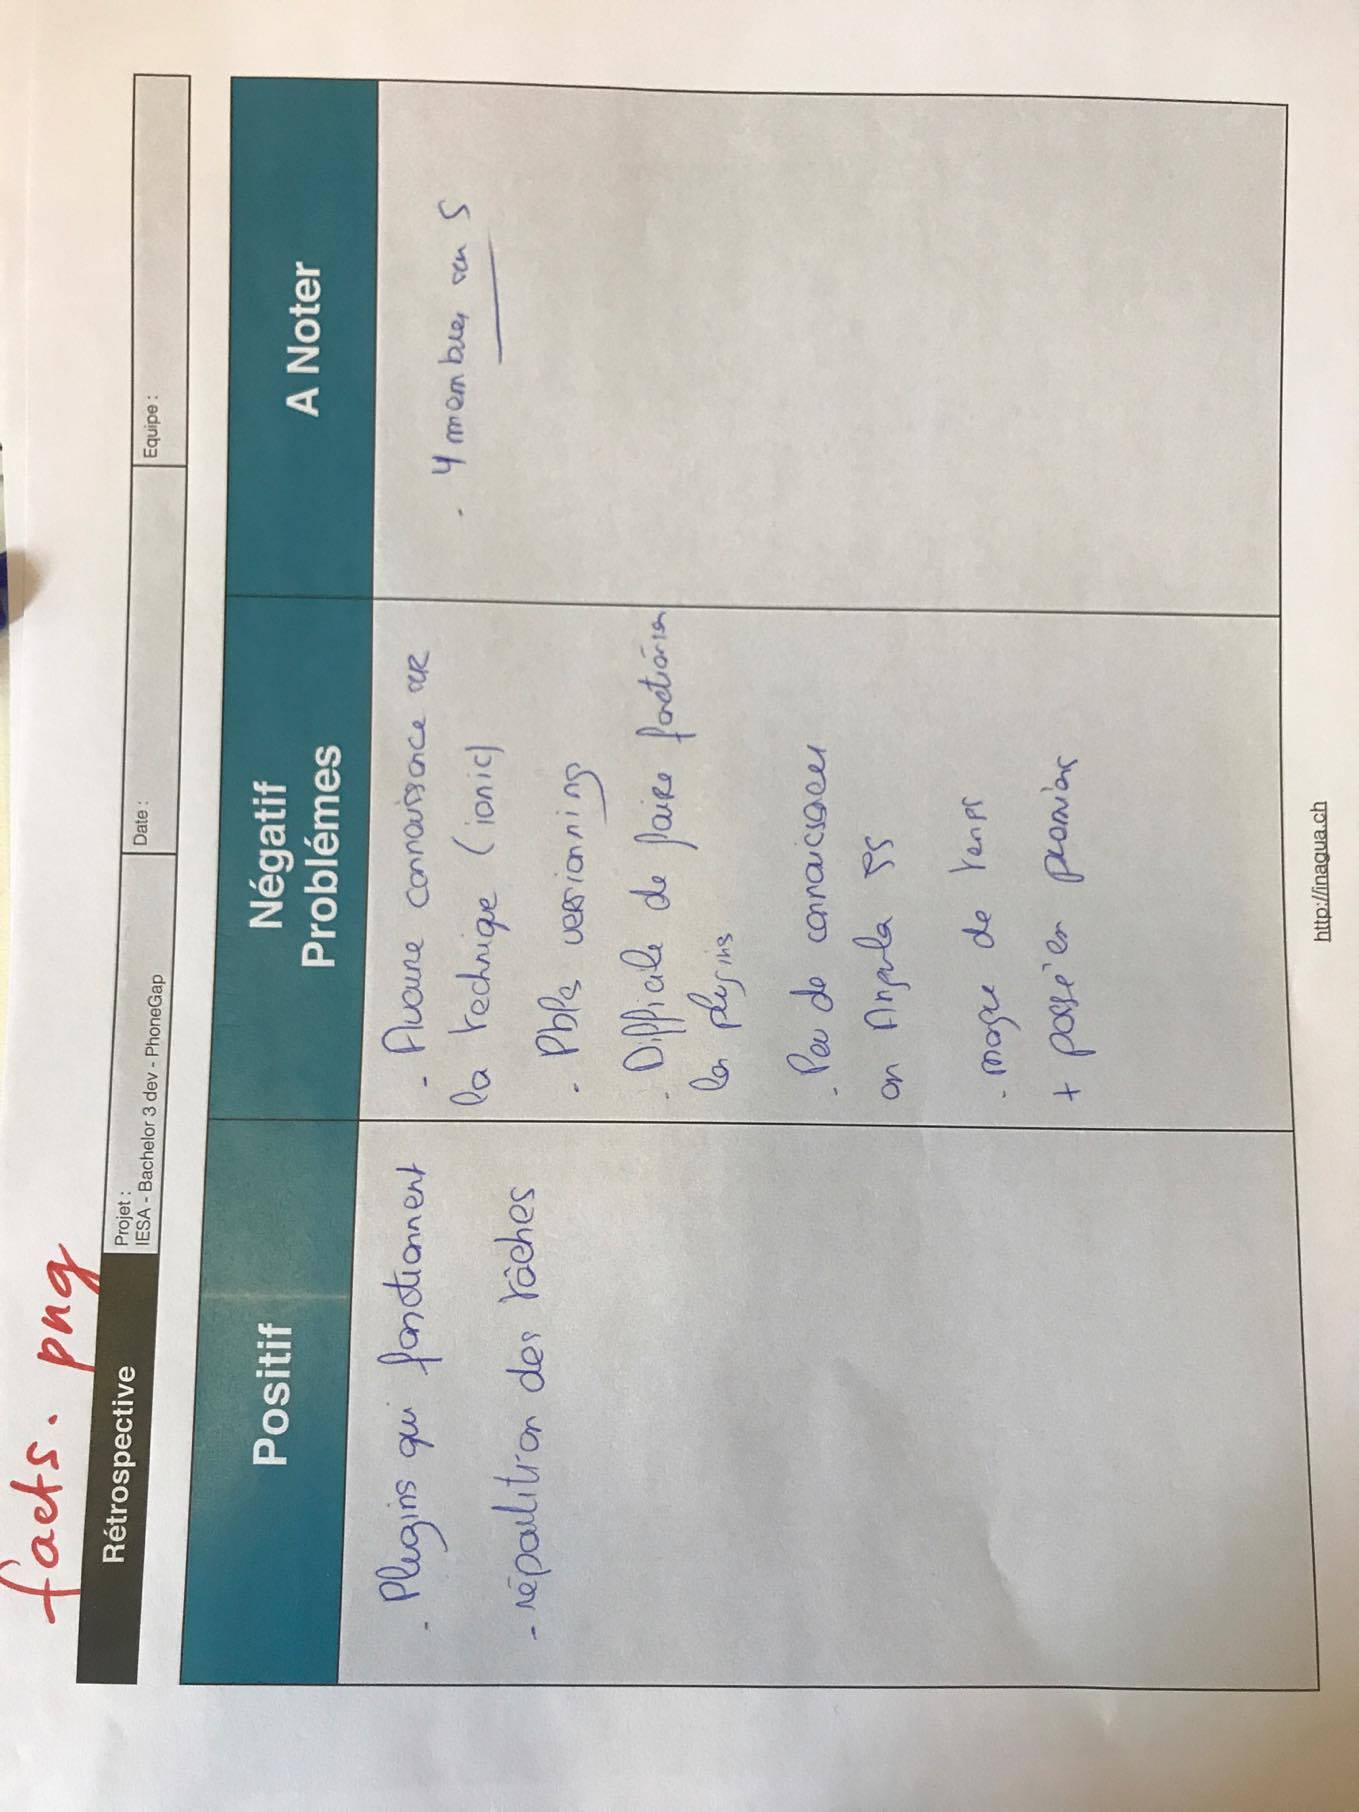 facts.png
Rétrospective
Projet :
IESA - Bachelor 3 dev - PhoneGap
Date :
Equipe :
Positif
- Plugins qui fonctionnent
- répartition des tâches
Négatif
Problémes
- Aucune connaissance sur
la technique (ionic)
- Pbls versionning
- Difficile de faire fonctionner
les plugins
- Peu de connaissances
en Angula JS
- manque de temps
+ passé en premier
A Noter
- 4 membres sur 5
http://inagua.ch